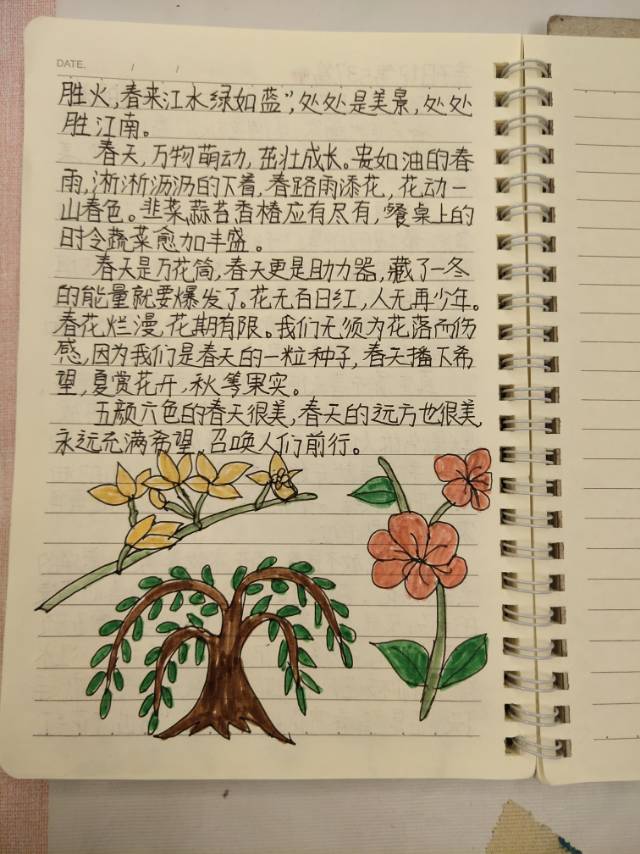 DATE. / /
胜火,春来江水绿如蓝",处处是美景,处处
胜江南。
春天,万物萌动,茁壮成长。贵如油的春
雨,淅淅沥沥的下着,春路雨添花,花动一
山春色。韭菜、蒜苔香椿应有尽有,餐桌上的
时令蔬菜愈加丰盛。
春天是万花筒,春天更是助力器,藏了一冬
的能量就要爆发了。花无百日红,人无再少年。
春花烂漫,花期有限。我们无须为花落而伤
感,因为我们是春天的一粒种子,春天播下希
望,夏赏花开,秋等果实。
五颜六色的春天很美,春天的远方也很美,
永远充满希望,召唤人们前行。